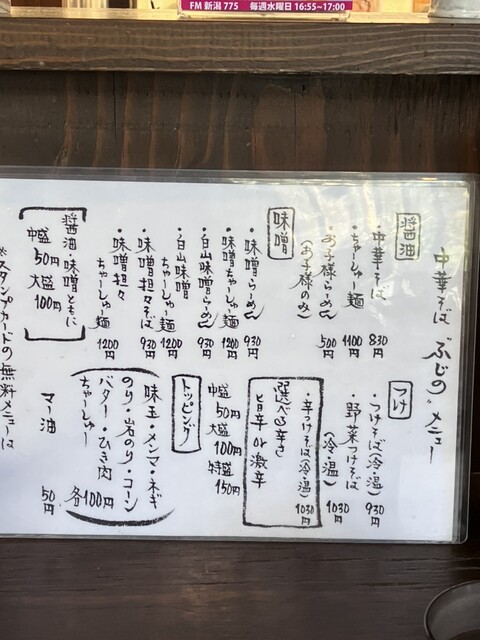 FM新潟775 毎週水曜日16:55~17:00
中華そば "ふじの" メニュー
醤油
中華そば 830円
・ちゃーしゅー麺 1100円
・お子様らーめん 500円
(お子様のみ)
味噌
・味噌らーめん 930円
・味噌ちゃーしゅー麺 1200円
・白山味噌らーめん 930円
・白山味噌ちゃーしゅー麺 1200円
・味噌担々そば 930円
・味噌担々ちゃーしゅー麺 1200円
醤油・味噌ともに
中盛50円 大盛100円
つけ
・つけそば(冷・温) 930円
・野菜つけそば(冷・温) 1030円
・辛つけそば(冷・温) 1030円
選べる辛さ
旨辛 or 激辛
中盛50円 大盛100円 特盛150円
トッピング
味玉・メンマ・ネギ
のり・岩のり・コーン
バター・ひき肉
ちゃーしゅー 各100円
マー油 50円
※スタンプカードの無料メニューは